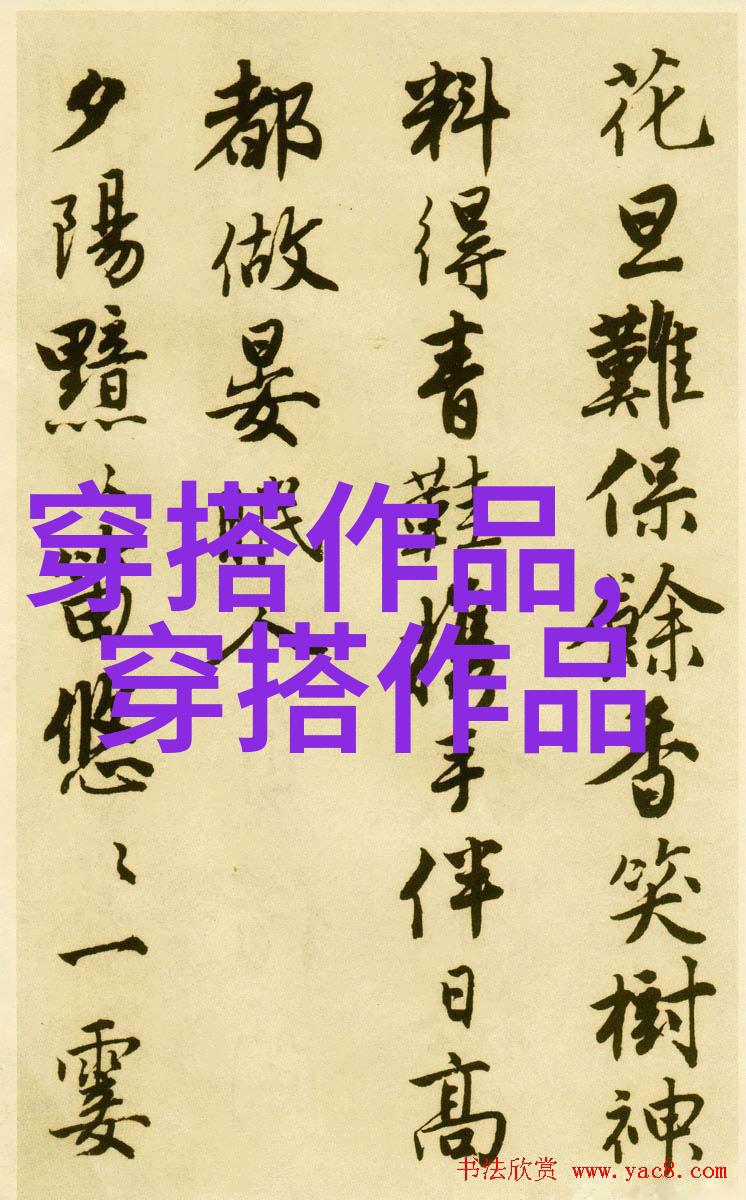 花旦難保餘香笑樹神
料得青鞋攜手伴日高
都做晏眠人
夕陽黯〻笛悠〻一霎
穿搭作品,
穿搭作品
书法欣赏 www.yac8.com